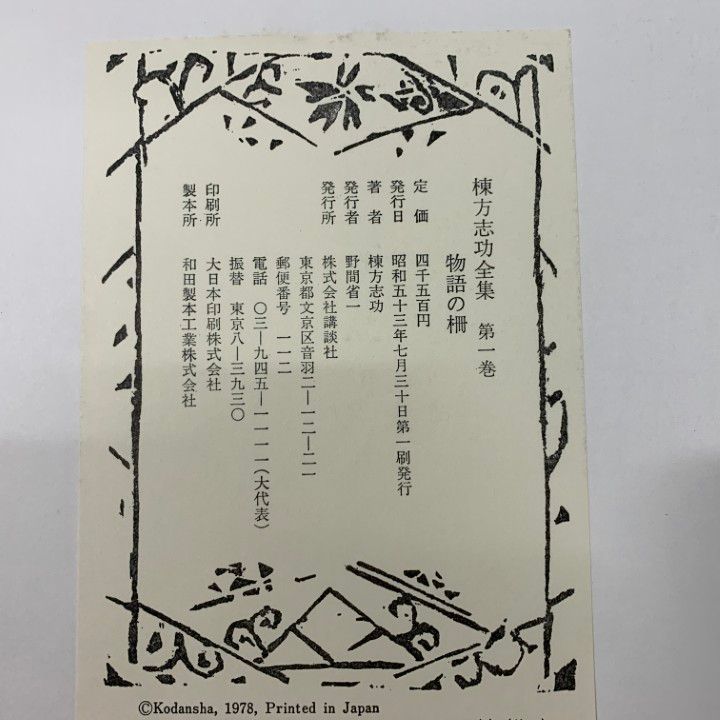 棟方志功全集 第一巻
物語の柵
定価 四千五百円
発行日 昭和五十三年七月三十日第一刷発行
著者 棟方志功
発行者 野間省一
発行所 株式会社講談社
東京都文京区音羽二―一二―二一
郵便番号 一一二
電話 〇三―九四五―一一一一(大代表)
振替 東京八―三九三〇
印刷所 大日本印刷株式会社
製本所 和田製本工業株式会社
©Kodansha, 1978, Printed in Japan